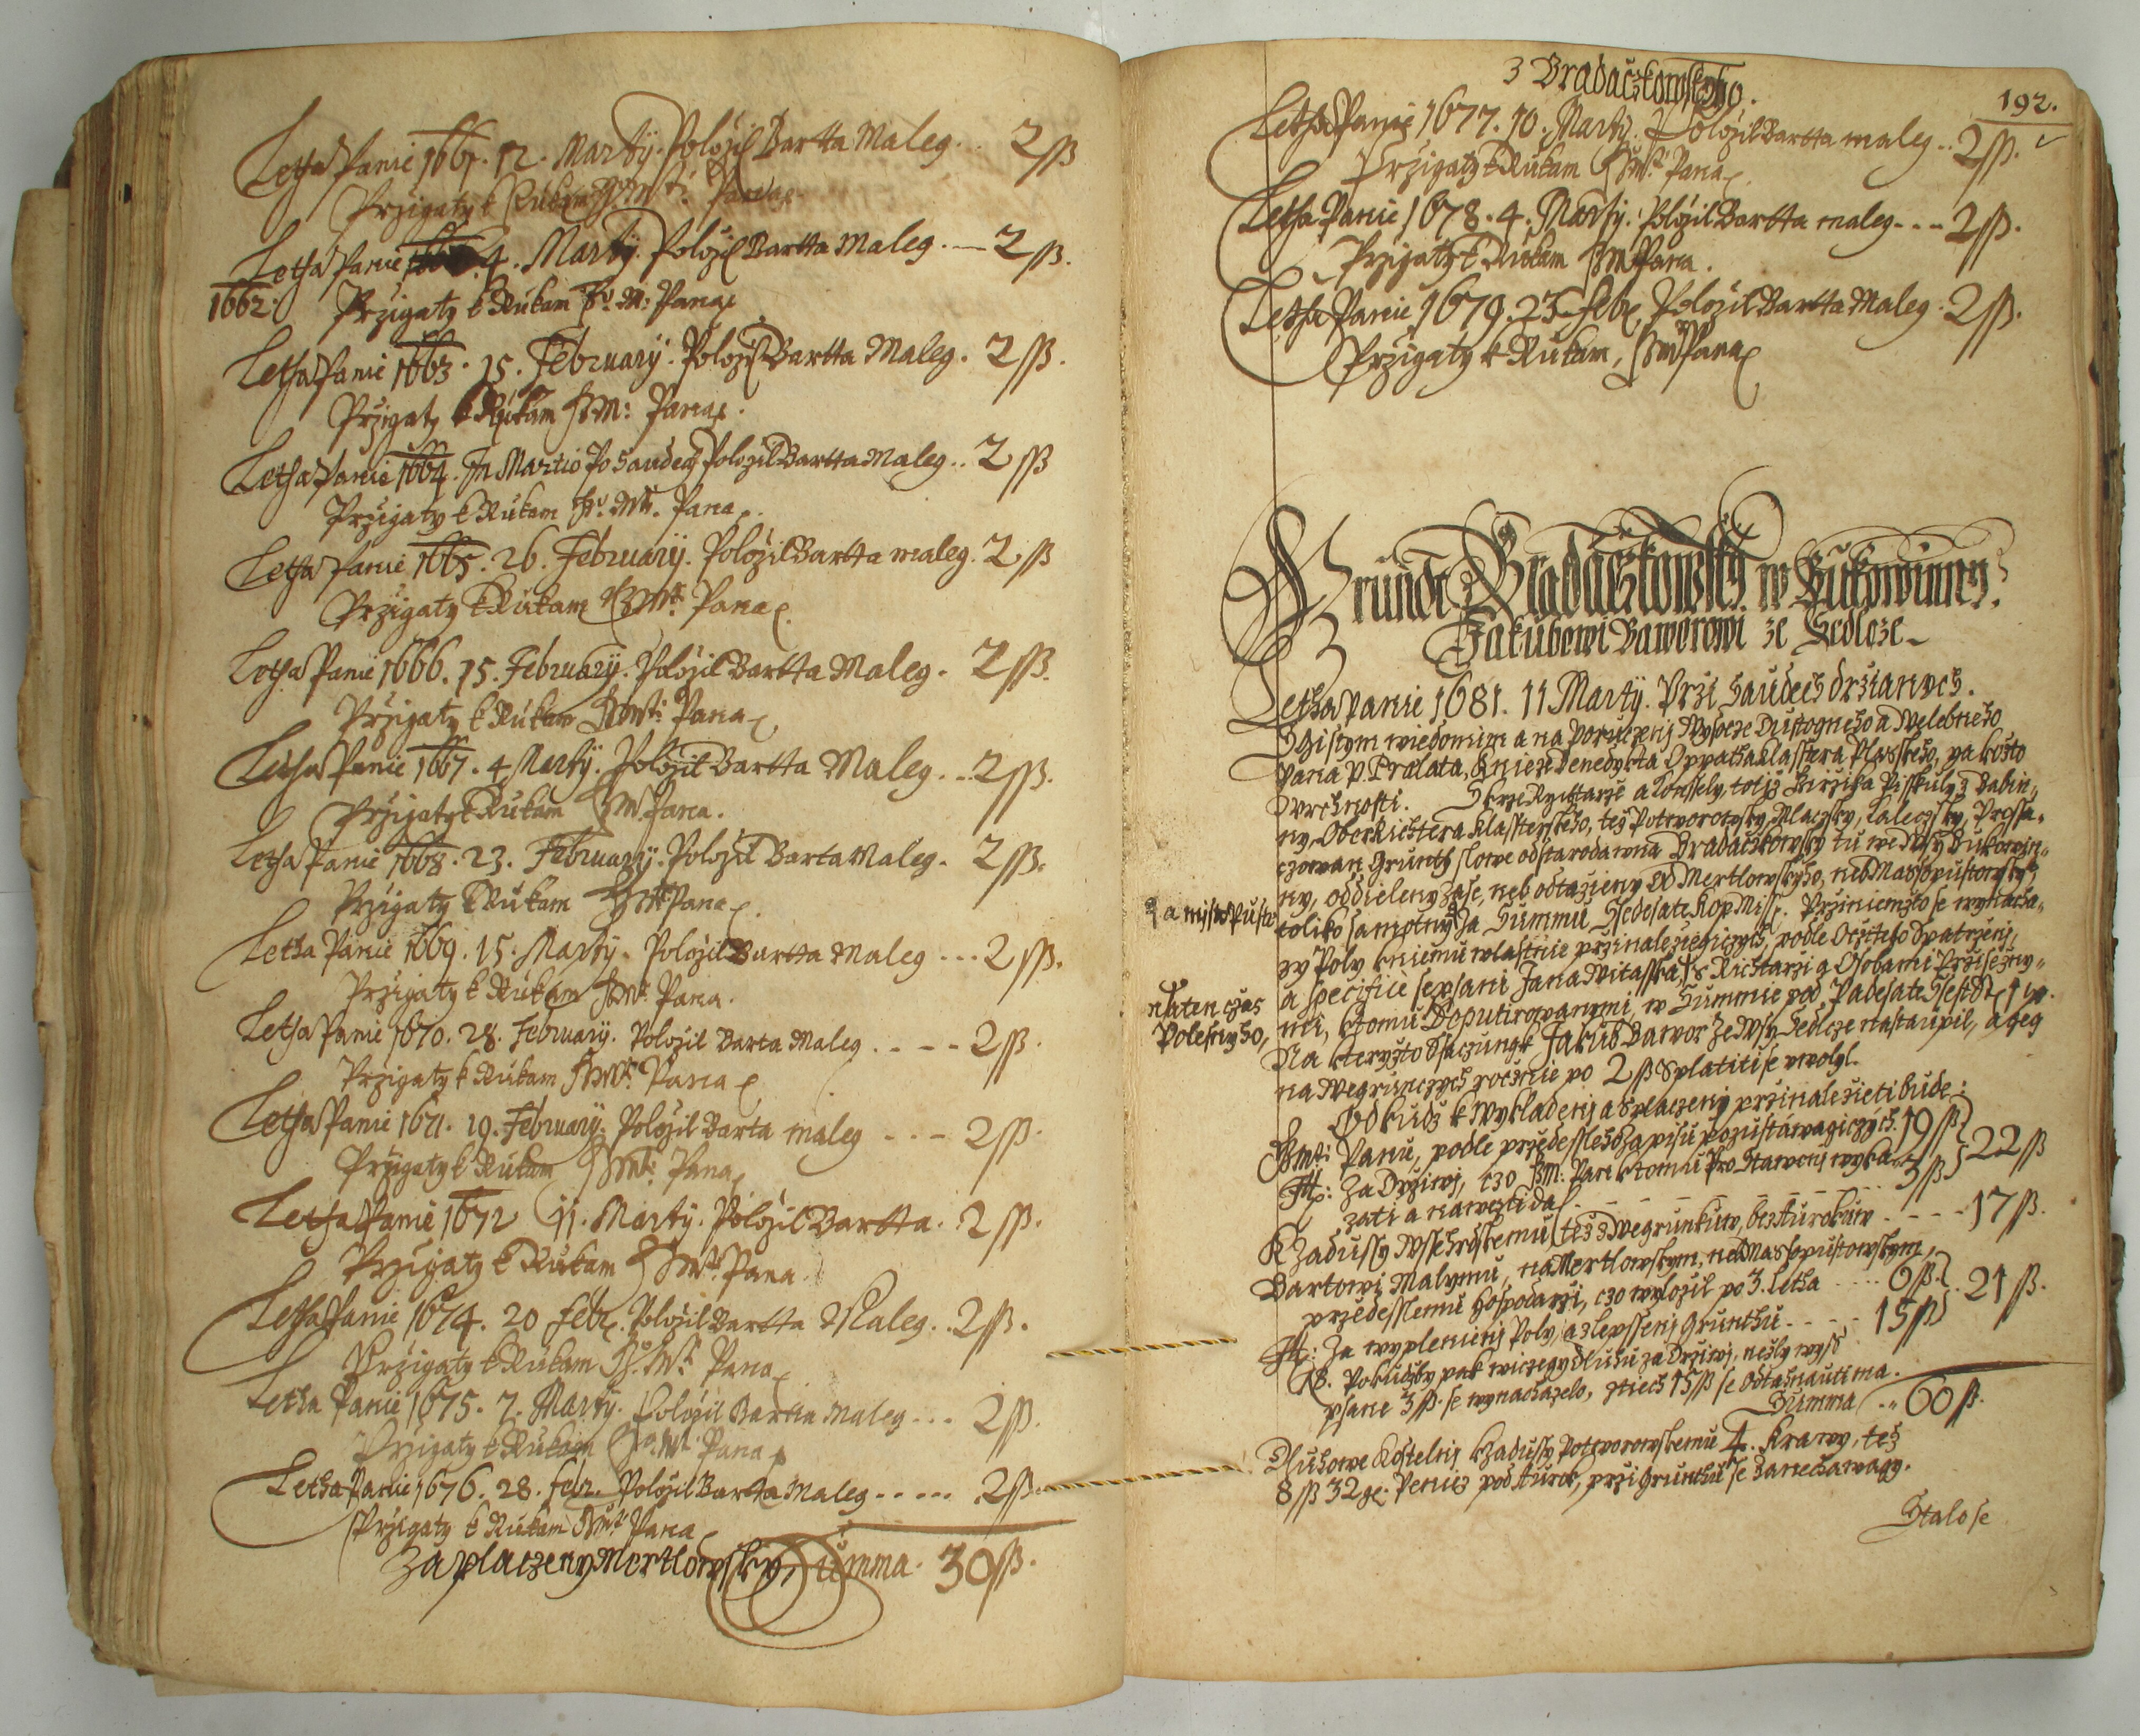 Letha Panie 1661. 12. Marty. Položil Bartta Maleg . . 2 ß
Przigaty k Rukam Jeho Mti Pana
Letha Panie 4. Marty. Položil Bartta Maleg . — 2 ß.
1662. Przigaty k Rukam J. M: Pana
Letha Panie 1663. 15. February. Položil Bartta Maleg. 2 ß.
Przigaty k Rukam JM: Pana.
Letha Panie 1664. In Martio Po Saudech Položil Bartta Maleg . . 2 ß
Przigaty k Rukam Jo. Mti. Pana.
Letha Panie 1665. 26. February. Položil Bartta maleg. 2 ß
Przigaty k Rukam JMti Pana
Letha Panie 1666. 15. February. Položil Bartta Maleg. 2 ß.
Przigaty k Rukam JMti Pana
Letha Panie 1667. 4 Marty. Položil Bartta Maleg. .. 2 ß.
Przigaty k Rukam JM. Pana.
Letha Panie 1668. 23. February. Položil Barta Maleg. 2 ß.
Przigaty k Rukam JMti Pana.
Letha Panie 1669. 15. Marty. Položil Bartta Maleg ... 2 ß.
Przigaty k Rukam JMti Pana.
Letha Panie 1670. 28. February. Položil Barta Maleg . . - - 2 ß.
Przigaty k Rukam JMti. Pana
Letha Panie 1671. 19. February. Položil Barta maleg - - - 2 ß.
Przigaty k Rukam JMti Pana
Letha Panie 1672 11. Marty. Položil Bartta. . 2 ß.
Przigaty k Rukam JMti Pana.
Letha Panie 1674. 20 Febr. Položil Bartta Maleg. . 2 ß.
Przigaty k Rukam J. Mti Pana
Letha Panie 1675. 7. Marty. Položil Bartta Maleg ... 2 ß.
Przigaty k Rukam Jo. Mti Pana
Letha Panie 1676. 28. Febr. Položil Bartta Maleg - - . . . 2 ß.
Przigaty k Rukam JMti Pana
Zaplaczeny Mertlowsky, Summa. 30 ß.
3 Bradaczkowskyho.
192.
Letha Panie 1677. 10. Marty. Položil Bartta maleg .. 2 ß.
Przigaty k Rukam JMti Pana
Letha Panie 1678. 4. Marty. Položil Bartta maleg - - - 2 ß.
Przigaty k Rukam JM Pana.
Letha Panie 1679. 23 Febr. Položil Bartta Maleg. 2 ß.
Przigaty k Rukam, JM Pana
Grundt Bradaczkowsky w Bukowinny.
Jakubowi Baworowi ze Sedlcze
Letha Panie 1681. 11 Marty. Przi Saudech držianych.
S gistym wiedomim a na poruczenj Wysocze Dustogneho a Welebneho
Pana P. Prælata, Knieze Benedykta Oppatha Klasstera Plasskeho, yakožto
Wrchnosti. Skrze Rychtarze a Konssely, totiž Girzika Pisskuly z Babin„
ny, Oberrichtera Klassterskeho, tež Potworowsky, Mlaczsky, Kaleczsky, Prossa„
czowan Grunth slowe od starodawna Bradaczkowsky tu we Wsy Bukowin„
ny, oddieleny zase, neb odtaženy od Mertlowskyho, neb Massopustowskyho,
Zamisto Pusto toliko samotny Za Summu Ssedesate Kop Miss. Przi niemžto se wynacha„
zy Poly kniemu wlastnie przinaležiegiczych, podle Ocziteho Spatrženj,
a specifice sepsani Jana Witasska, Richtarzi a Osobami Przisežny„
na ten czas
Polesnyho,
mi, ktomu Deputirowanymi, w Summie pod Padesate Ssest St.
Na kteryžto Ssaczungk Jakub Bawor ze Wsy Sedlcze nastaupil, a geg
na Wegrunczych rocžnie po 2 ß Splatiti se uwolyl.
Odkudž k wykladenj a Splaczenj przinaležieti bude:
JMti Panu, podle przedessleho Zapisu pozustawagiczych. 19 ß } 22 ß
It: Za Drziwj, czo JM: Pan ktomu Pro Stawenj wyka„ 3 ß
zati a nawezti dal. - - - - - -
K Zadussy Wssehrdskemu též z Wegrunkuw, bez Auroku . - - - - 17 ß.
Bartowi Malymu, na Mertlowskym, neb Massopustowskym,
przedesslemu Hospodarzi, czo wyložil po 3. Letha ..... 6 ß. } 21 ß.
It: Za wyplenienj Poly, a zlepssenj Grunthu - . - . - 15 ß
NB. Pokudžby pak wiczegy Dluhu za Drziwj, nežly wyss
psane 3 ß. se wynachazelo, ztiech 15 ß se odtahnauti ma.
Summa . . 60 ß.
Dluhowe Kostelnj k Zadussy Potworowskemu 4. Krawy, tež
8 ß 32 gr. Peniez pod Aurok, przi Grunthu se zanechawagy.
Stalo se